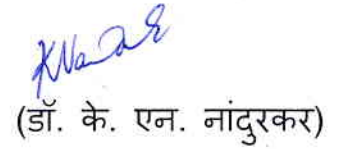 (डॉ. के. एन. नांदुरकर)